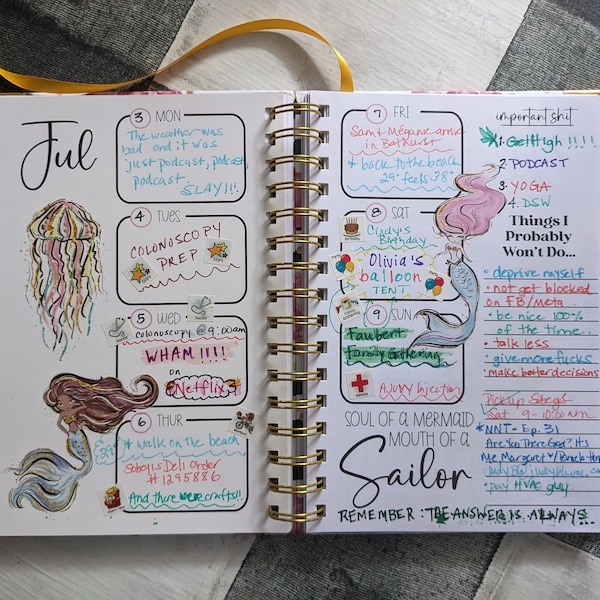 Jul
3 MON
The weather was
bad and it was
just podcast, podcast,
podcast.
SLAY!!!
4 TUES
COLONOSCOPY
PREP
5 WED
colonoscopy @ 9:00am
WHAM!!!!
on
Netflix
6 THUR
* walk on the beach
Sobeys Deli Order
#1295886
And there were crafts!!
7 FRI
Sam & Mégane arrive
in Bathurst
* back to the beach
29° feels 38°
8 SAT
Cindy's
Birthday
Olivia's
balloon
TENT
9 SUN
Faubert
Family Gathering
Ajovy Injection
SOUL OF A MERMAID
MOUTH OF A
Sailor
REMEMBER: THE ANSWER IS ALWAYS...
important shit
1. Get High !!!!
2. PODCAST
3. YOGA
4. DSW
Things I
Probably
Won't Do...
• deprive myself
• not get blocked
on FB/Meta
• be nice 100%
of the time.
• talk less
• give more fucks
• make better decisions
Pick up Sobeys
Sat 9-10:00am
* NNT - Ep. 31
Are You There God? It's
Me, Margaret
• pay HVAC guy